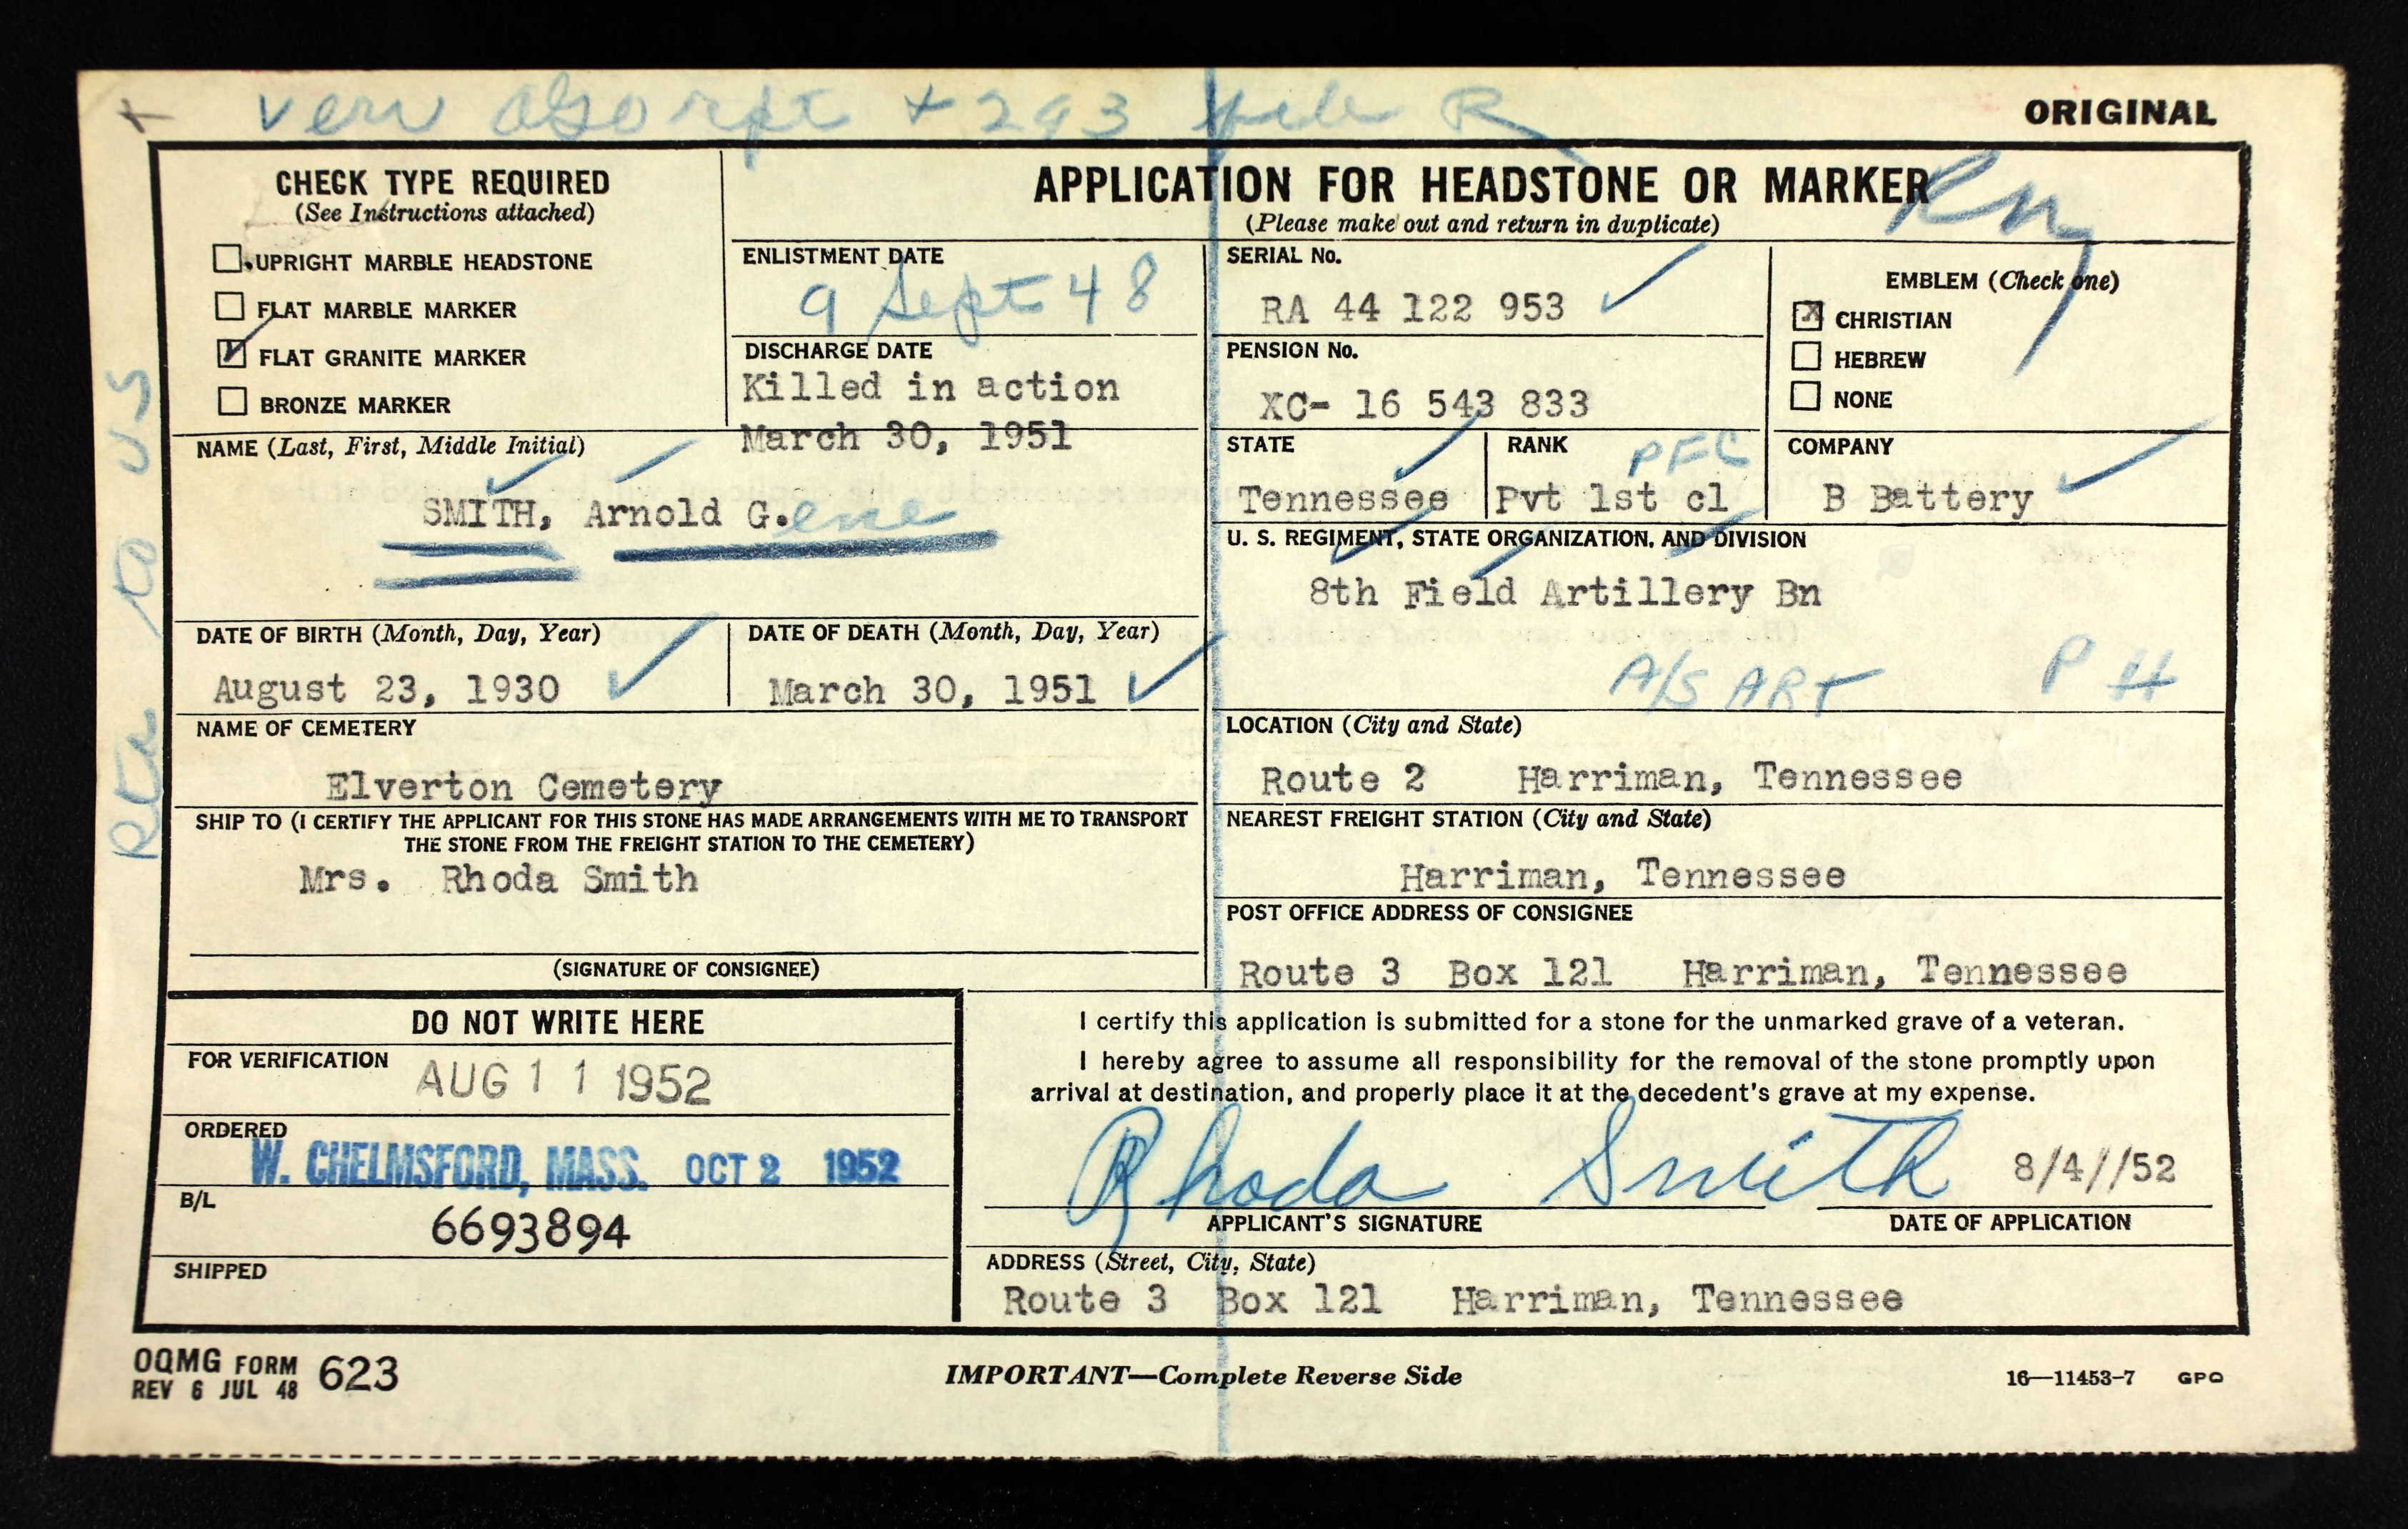 + 293
ORIGINAL
CHECK TYPE REQUIRED
(See Instructions attached)
UPRIGHT MARBLE HEADSTONE
FLAT MARBLE MARKER
FLAT GRANITE MARKER
BRONZE MARKER
APPLICATION FOR HEADSTONE OR MARKER
(Please make out and return in duplicate)
ENLISTMENT DATE
9 Sept 48
DISCHARGE DATE
Killed in action
March 30, 1951
SERIAL No.
RA 44 122 953
PENSION No.
XC- 16 543 833
EMBLEM (Check one)
CHRISTIAN
HEBREW
NONE
NAME (Last, First, Middle Initial)
SMITH, Arnold G.ene
STATE
Tennessee
RANK
PFC
Pvt 1st cl
COMPANY
B Battery
U. S. REGIMENT, STATE ORGANIZATION, AND DIVISION
8th Field Artillery Bn
A/S ART P H
DATE OF BIRTH (Month, Day, Year)
August 23, 1930
DATE OF DEATH (Month, Day, Year)
March 30, 1951
NAME OF CEMETERY
Elverton Cemetery
LOCATION (City and State)
Route 2 Harriman, Tennessee
SHIP TO (I CERTIFY THE APPLICANT FOR THIS STONE HAS MADE ARRANGEMENTS WITH ME TO TRANSPORT
THE STONE FROM THE FREIGHT STATION TO THE CEMETERY)
Mrs. Rhoda Smith
(SIGNATURE OF CONSIGNEE)
NEAREST FREIGHT STATION (City and State)
Harriman, Tennessee
POST OFFICE ADDRESS OF CONSIGNEE
Route 3 Box 121 Harriman, Tennessee
DO NOT WRITE HERE
FOR VERIFICATION
AUG 11 1952
ORDERED
W. CHELMSFORD, MASS. OCT 2 1952
B/L
6693894
SHIPPED
I certify this application is submitted for a stone for the unmarked grave of a veteran.
I hereby agree to assume all responsibility for the removal of the stone promptly upon
arrival at destination, and properly place it at the decedent's grave at my expense.
Rhoda Smith 8/4//52
APPLICANT'S SIGNATURE
DATE OF APPLICATION
ADDRESS (Street, City, State)
Route 3 Box 121 Harriman, Tennessee
OQMG FORM 623
REV 6 JUL 48
IMPORTANT—Complete Reverse Side
16—11453-7 GPO